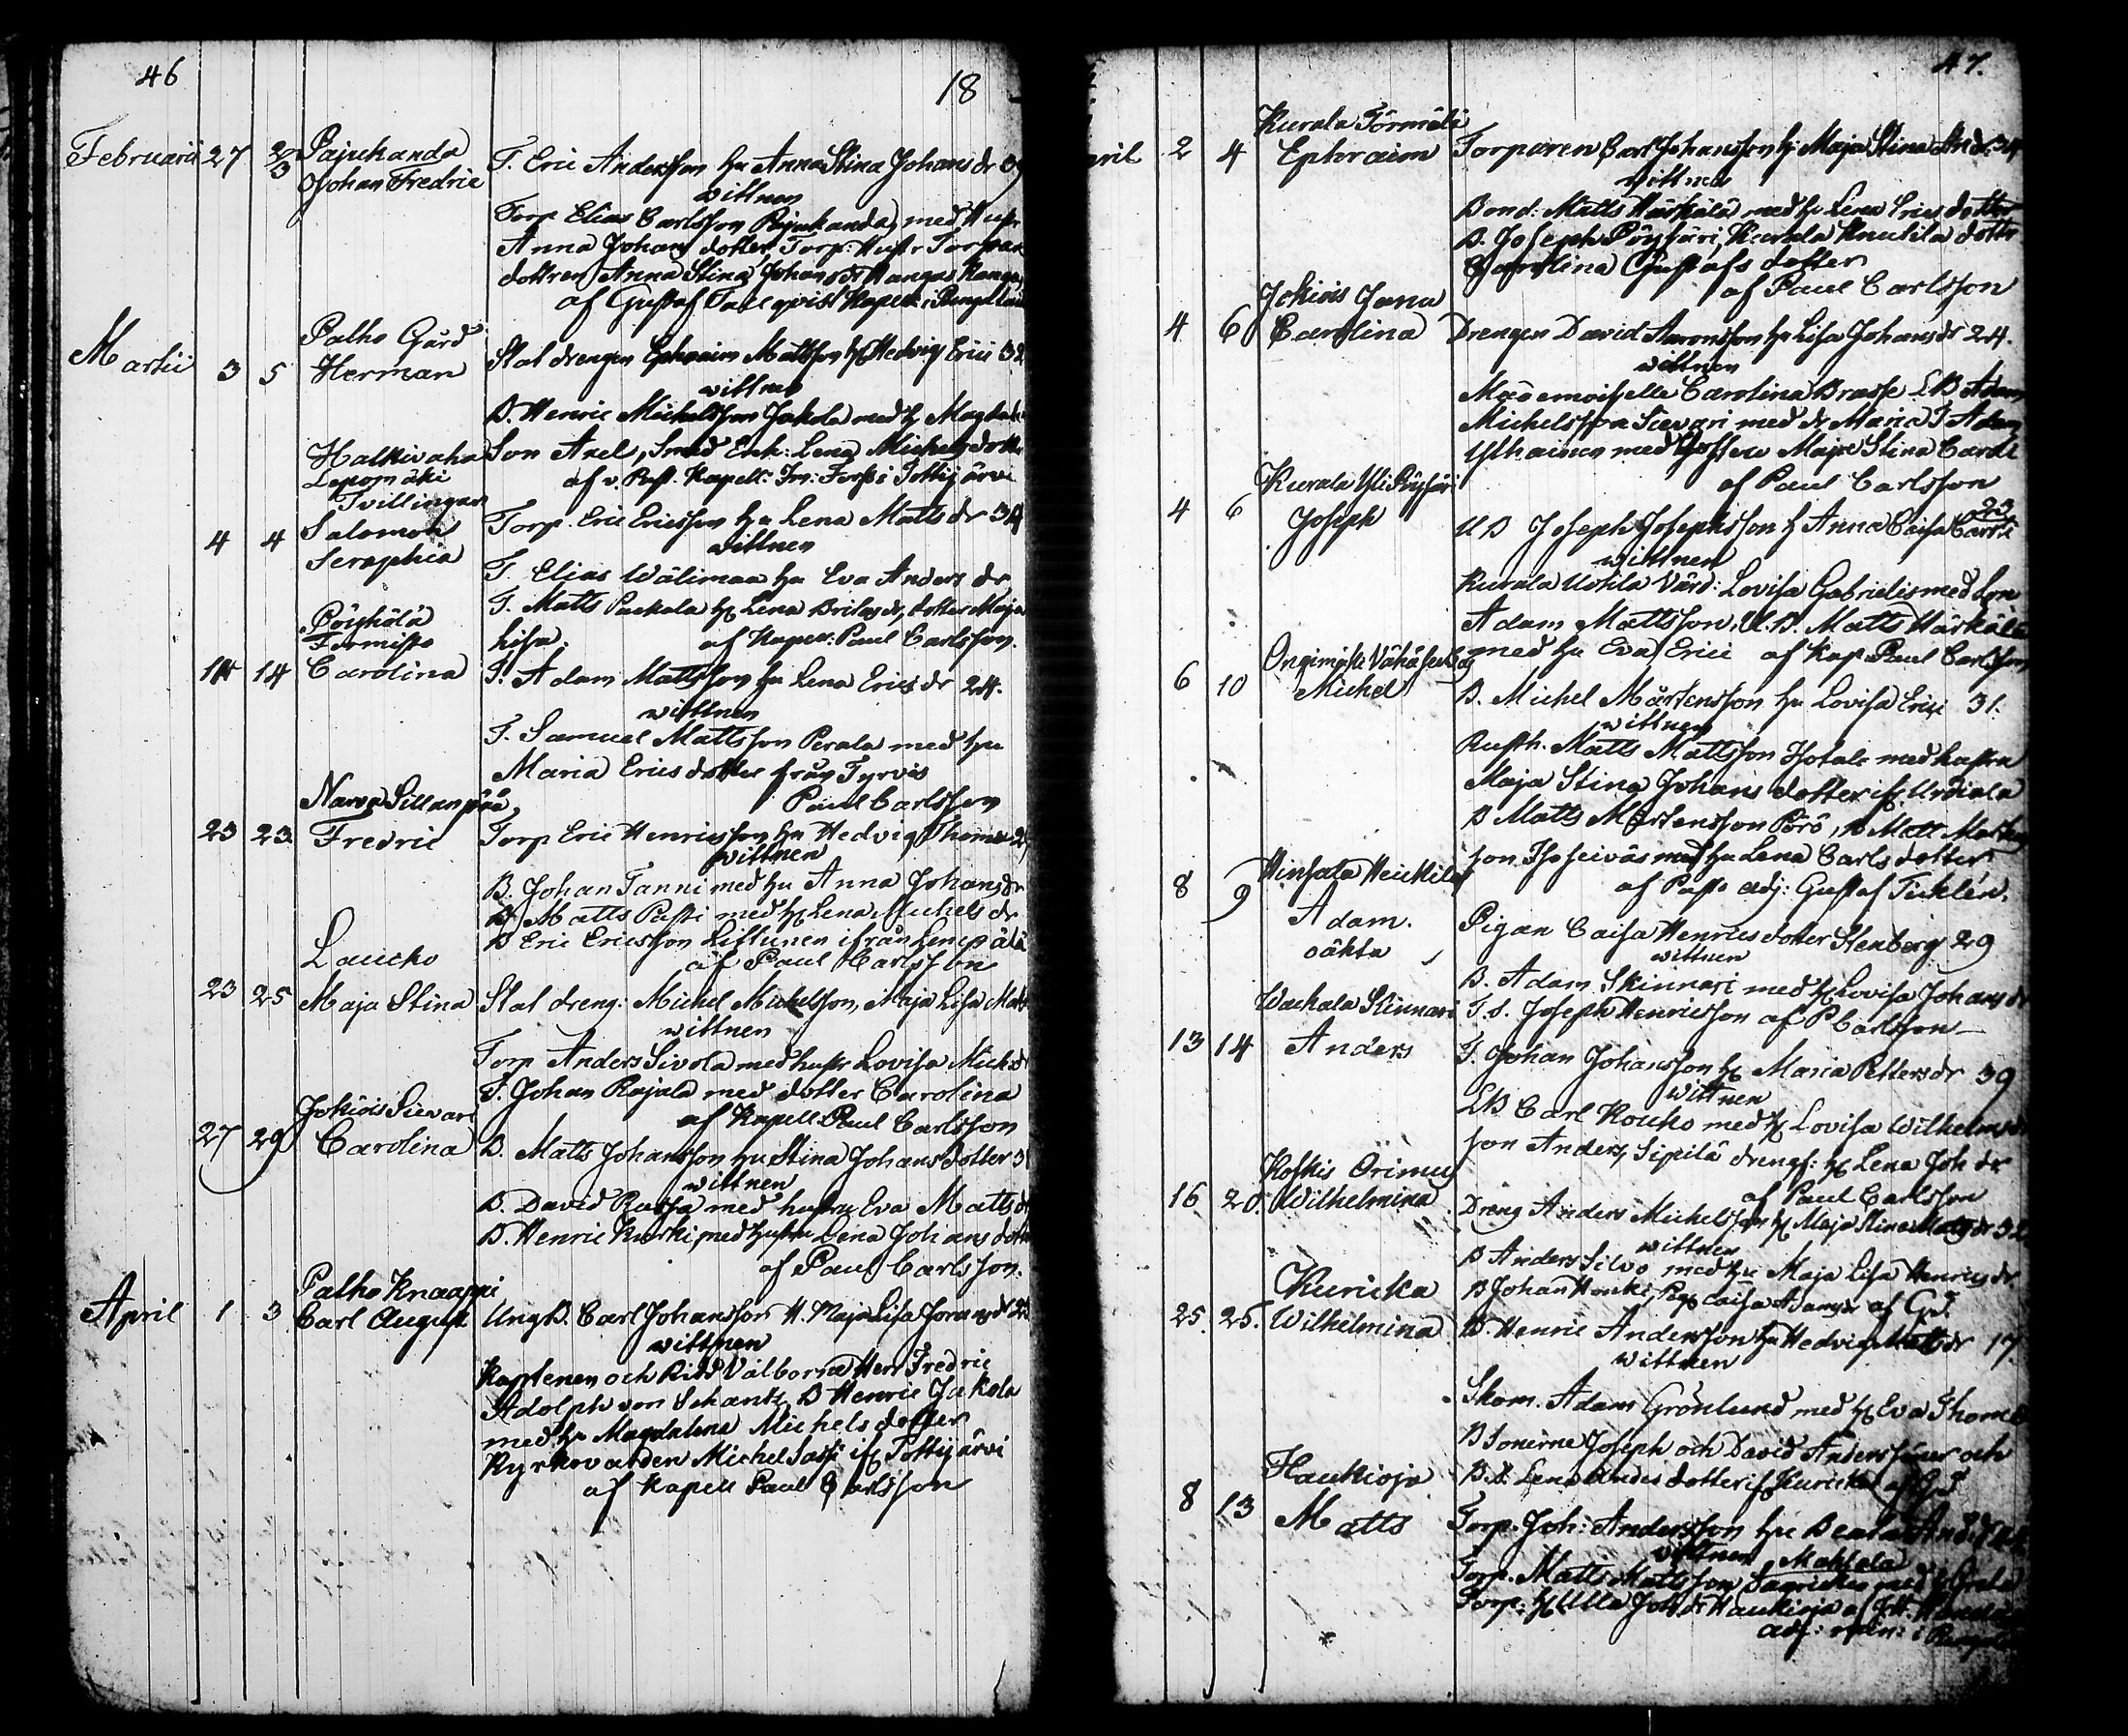 46
18
Februarii 27 2/3 Pajukanda
Johan Fredric
T. Eric Andersson hu Anna Stina Johans dr 39
wittnen
Torp Elias Carlsson Pajukanda med Hustr
Anna Johans dotter, Torp: Hustr Torpare
dottren Anna Stina Johans dr Kangas
af Gustaf Kapell: i
Martii 3 5 Palho Gård
Herman
Stat drengen Ephraim Mattsson H Hedvig Erici 32
wittnen
B. Henric Michelsson Jakola med h Magdal
Son Axel, Smed Enk: Lena Michels dotter
af v. Past. Kapell: i Tottijärvi
Halkivaha
Lepomäki
Tvillingar
4 4 Salomon
Seraphia
Torp. Eric Ericsson hu Lena Matts dr 34
wittnen
T. Elias Wälimaa hu Eva Anders dr
T. Matts Packala h Lena dr, dotter Maja
Lisa. af Kapell: Paul Carlsson.
Pöyhölä
14 14 Carolina
T. Adam Mattsson hu Lena Erics dr 24.
wittnen
T. Samuel Mattsson Perala med hu
Maria Erics dotter från Tyrvis
Paul Carlsson
Narva Sillanpää
23 23. Fredric
Torp Eric Henricsson hu Hedvig Thomæ
wittnen
B. Johan Tanni med hu Anna Johans dr
B Matts Passi med h Lena Michels dr
B Eric Ericsson ifrån Lempälä
af Paul Carlsson
Laucko
23 25 Maja Stina
Stat dreng: Michel Michelsson, Maja Lisa Matt
wittnen
Torp Anders Sivola med hustr Lovisa Michs
T. Johan Rajala med dotter Carolina
af Kapell: Paul Carlsson
Jokiois Sievari
27 29 Carolina
B. Matts Johansson hu Stina Johans dotter 3
wittnen
B. David Rassa med hustru Eva Matts dr
B. Henric Kurki, med hustru Lena Johans dotter
af Paul Carlsson.
Palho Knaappi
April 1 3 Carl August
Ung B. Carl Johansson H. Maja Lisa dr 23
wittnen
Kaptenen och Ridd Välborne Herr Fredric
Adolph von Schantz, B Henric Jakola
med hu Magdalena Michels dotter
Kyrkovärden Michel Sassi if Tottijärvi
af Kapell Paul Carlsson
47.
Kurala Törmälä
April 2 4 Ephraim
Torparen Carl Johansson h Maja Stina And. 34
wittnen
Bond: Matts Härkälä med hu Lena Erics dotter
B. Joseph Pöyhäri, Kurala Knutila dottr
Carolina Gustafs dotter
af Paul Carlsson
Jokiois Jana
4 6 Carolina
Drengen David Aaronsson hu Lisa Johans dr 24.
wittnen
Mademoiselle Carolina Brasse LB Adam
Michelsson Sievari med dr Maria T Adam
Ylhainen med Maja Stina Carol
af Paul Carlsson
Kurala Yli
4 6 Joseph
UB Joseph Josephsson h Anna Caisa Carol 23
wittnen
Kurala Uotila Värd: Lovisa Gabrielis med Son
Adam Mattsson, U.B. Matts Härkälä
med hu Eva Erici af Kap Paul Carlsson
Ongimäki
6 10 Michel
B. Michel Mårtensson hu Lovisa Erici 31.
wittnen
Rusth. Matts Mattsson Isotalo med hustru
Maja Stina Johans dotter if Urdiala
B Matts Mårtensson Pörö, B Matt Matts
son med hu Lena Carls dotter
af Past. adj: Gustaf Ticklén.
Hinsala Heickilä
8 9 Adam.
oäkta
Pigan Caisa Henrics dotter Stenberg 29
wittnen
B. Adam Skinnari med h Lovisa Johans dr
T. S. Joseph Henricsson af P Carlsson
Wackala Skinnari
13 14 Anders
T. Johan Johansson h Maria Petters dr 39
wittnen
LB Carl Kouko med h Lovisa Wilhelms dr
son Anders, Sipilä drengs: h Lena Joh dr
af Paul Carlsson
Koskis Orimus
16 20 Wilhelmina
Dreng Anders Michelsson h Maja Stina Matts dr 32
wittnen
B Anders Silvo med hu Maja Lisa Henrics dr
B Johan Honki, Pig Caisa Adams dr af G T
Kuricka
25 25. Wilhelmina
B. Henric Andersson hu Hedvig Matts dr 17.
wittnen
Skom. Adam Grönlund med h Eva Thom
B Sönerne Joseph och David Anderssöner och
B.d. Lena Anders dotter if Kuricka af G T
Haukioja
8 13 Matts
Torp. Joh: Andersson hu Beata And. dr
wittnen Mahlala
Torp. Matts Mattsson med h Greta
Torp: h Ulla Joh dr Haukioja af
adj: i